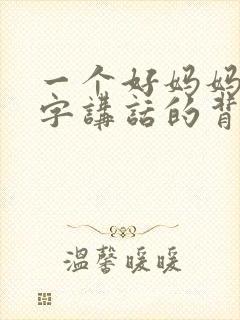 一个好妈妈
字講話的背
温馨暖暖